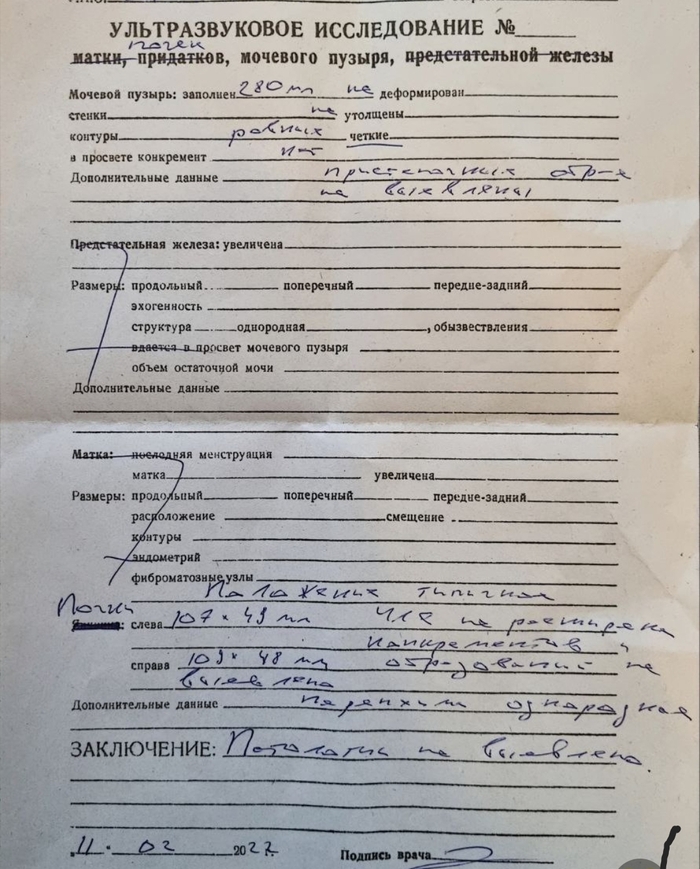 УЛЬТРАЗВУКОВОЕ ИССЛЕДОВАНИЕ №
почек
матки, придатков, мочевого пузыря, предстательной железы
Мочевой пузырь: заполнен 280 мл не деформирован
стенки не утолщены
контуры ровные четкие
в просвете конкремент нет
Дополнительные данные пристеночных обр-й
не выявлены
Предстательная железа: увеличена
Размеры: продольный поперечный передне-задний
эхогенность
структура однородная, обызвествления
вдается в просвет мочевого пузыря
объем остаточной мочи
Дополнительные данные
Матка: последняя менструация
матка увеличена
Размеры: продольный поперечный передне-задний
расположение смещение
контуры
эндометрий
фиброматозные узлы
Положение типичное
Почки
слева 107 × 49 мм ЧЛС не расширена
конкрементов и
справа 109 × 48 мм образований не
выявлено
Дополнительные данные Паренхима однородная
ЗАКЛЮЧЕНИЕ: Патологии не выявлено.
11. 02 2022
Подпись врача